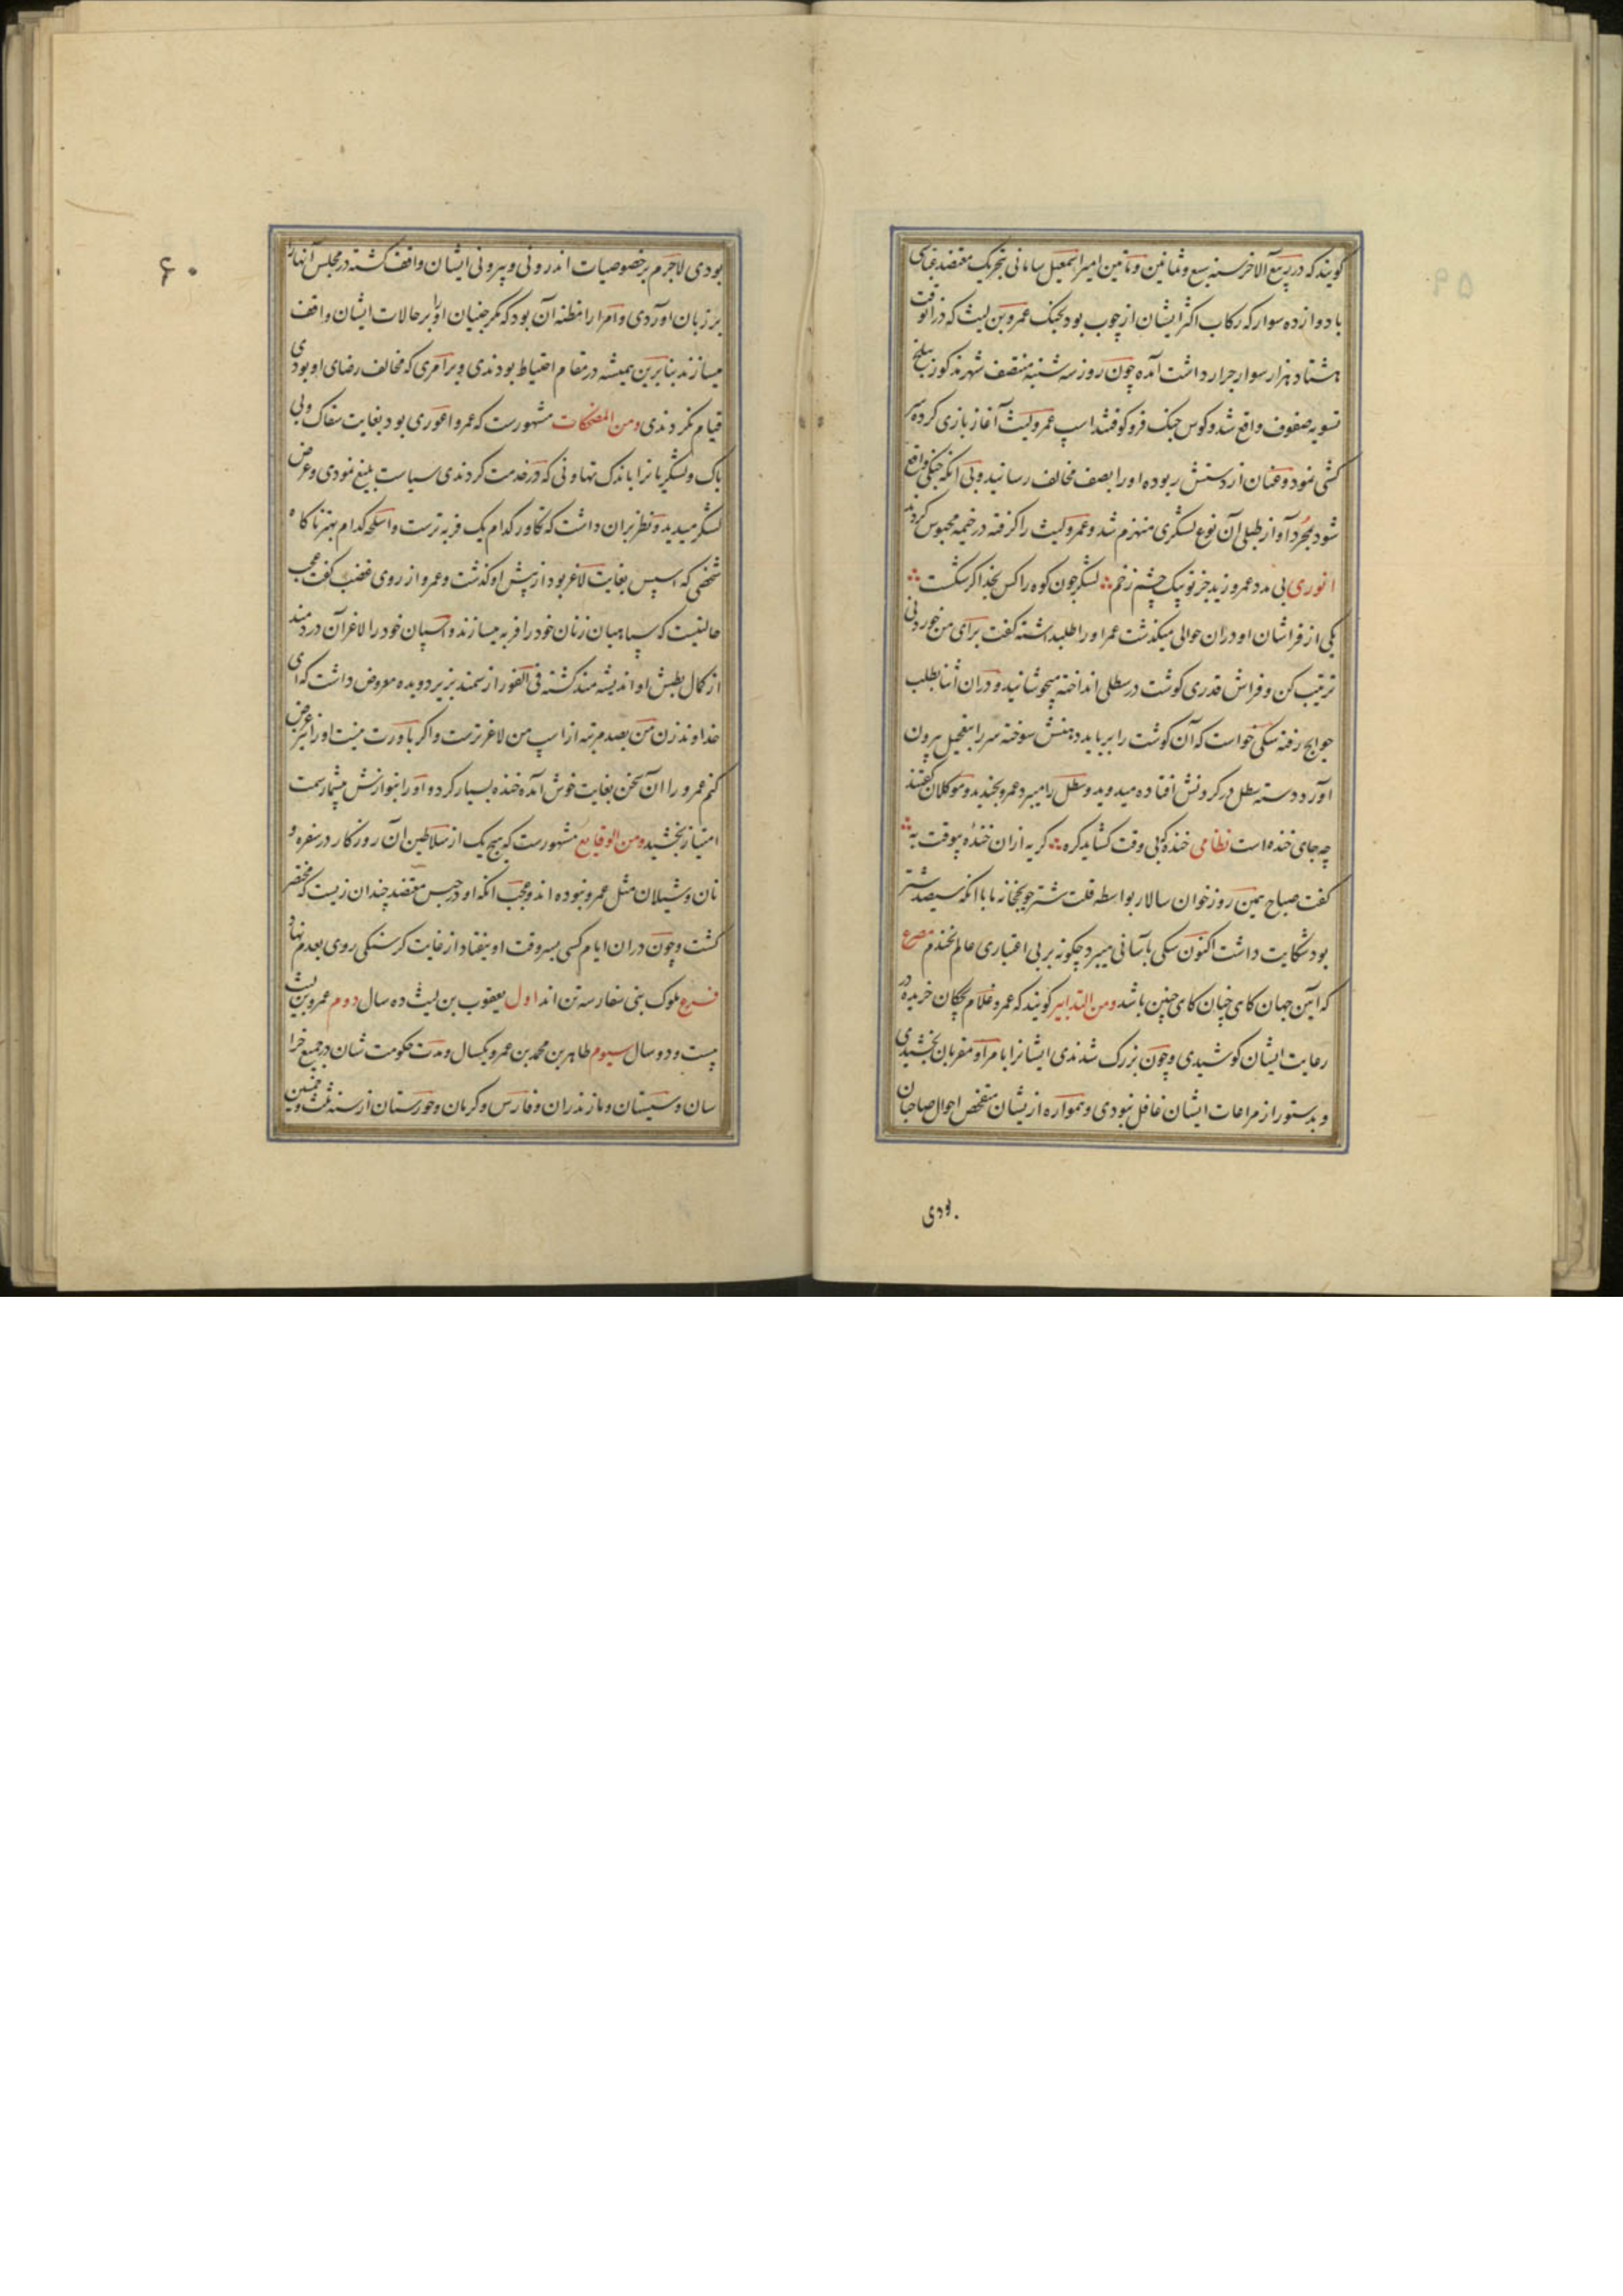 گویند که در ربیع الآخر سنه سبع و ثمانین و مأتین امیر اسمعیل سامانی بتحریک معتضد عباسی
با دوازده سوار که رکاب اکثر ایشان از چوب بود بجنک عمرو بن لیث که در آنوقت
هشتاد هزار سوار جرار داشت آمده چون روز سه شنبه منتصف شهر مذکور ببلخ
تسویه صفوف واقع شد و کوس جنک فرو کوفتند اسپ عمرو لیث آغاز بازی کرده سر
کشی نمود و عنان از دستش ربوده او را بصف مخالف رسانید و بی آنکه جنکی واقع
شود بمجرد آواز طبلی آن نوع لشکری منهزم شد و عمرو لیث را کرفته در خیمه محبوس کردند
انوری بی مدد عمرو زید جز تو بیک چشم زخم لشکر چون کوه را کس بخدا کر شکست
یکی از فراشان او در ان حوالی میکذشت عمر او را طلبداشته کفت برای من خوردنی
ترتیب کن و فراش قدری کوشت در سطلی انداخته میجوشانید و دران اثنا بطلب
حوایج رفته سکی خواست که آن کوشت را برباید دهنش سوخته سر را بتعجیل برون
آورد و دسته سطل در کردنش افتاده میدوید و سطل را میبرد عمرو بخندید و موکلان کفتند
چه جای خنده است نظامی خنده که بی وقت کشاید کره کریه ازان خنده بیوقت به
کفت صباح همین روز خوان سالار بواسطه قلت شتر جویجخانه ما با آنکه سیصد شتر
بود شکایت داشت اکنون سکی بآسانی میبرد چکونه بر بی اعتباری عالم نخندم مصرع
که آیین جهان کاهی چنان کاهی چنین باشد ومن التدابیر کویند که عمرو غلام بچکان خریده در
رعایت ایشان کوشیدی و چون بزرک شدندی ایشانرا بامرا و مقربان بخشیدی
و بدستور از مراعات ایشان غافل نبودی و همواره ازیشان متفحص احوال صاحبان
بودی
۶۰
بودی لاجرم بر خصوصیات اندرونی و بیرونی ایشان واقف کشته در مجلس آنها را
بر زبان آوردی و امرا را مظنه آن بود که مکر جنیان او را بر حالات ایشان واقف
میسازند بنابرین همیشه در مقام احتیاط بودندی و بر امری که مخالف رضای او بودی
قیام نکردندی ومن المضحکات مشهورست که عمرو اعوری بود بغایت سفاک و بی
باک و لشکریانرا باندک تهاونی که در خدمت کردندی سیاست بلیغ نمودی و عرض
لشکر میدید و نظر بران داشت که تکاور کدام یک فربه ترست و اسلحه کدام بهتر ناکاه
شخصی که اسپس بغایت لاغر بود از پیش او کذشت و عمرو از روی غضب کفت عجب
حالتیست که سپاهیان زنان خود را فربه میسازند و اسپان خود را لاغر آن دردمند
از کمال بطش او اندیشه مند کشته فی الفور از سمند بزیر دویده معروض داشت که ای
خداوند زن من بصد مرتبه از اسپ من لاغرترست و اکر باورت نیست او را نیز عرض
کنم عمرو را آن سخن بغایت خوش آمده خنده بسیار کرد و او را بنوازش بیشمار سمت
امتیاز بخشید ومن الوقایع مشهورست که هیچ یک از سلاطین آن روزکار در سفره و
نان و شیلان مثل عمرو نبوده اند و عجب انکه او در حبس معتضد چندان زیست که محتضر
کشت و چون دران ایام کسی بسر وقت او نیفتاد از غایت کرسنکی روی بعدم نهاد
فرع ملوک بنی صفار سه تن اند اول یعقوب بن لیث ده سال دوم عمرو بن لیث
بیست و دو سال سیوم طاهر بن محمد بن عمرو یکسال و مدت حکومت شان در جمیع خرا
سان و سیستان و مازندران و فارس و کرمان و خوزستان از سنه ثلث و خمسین